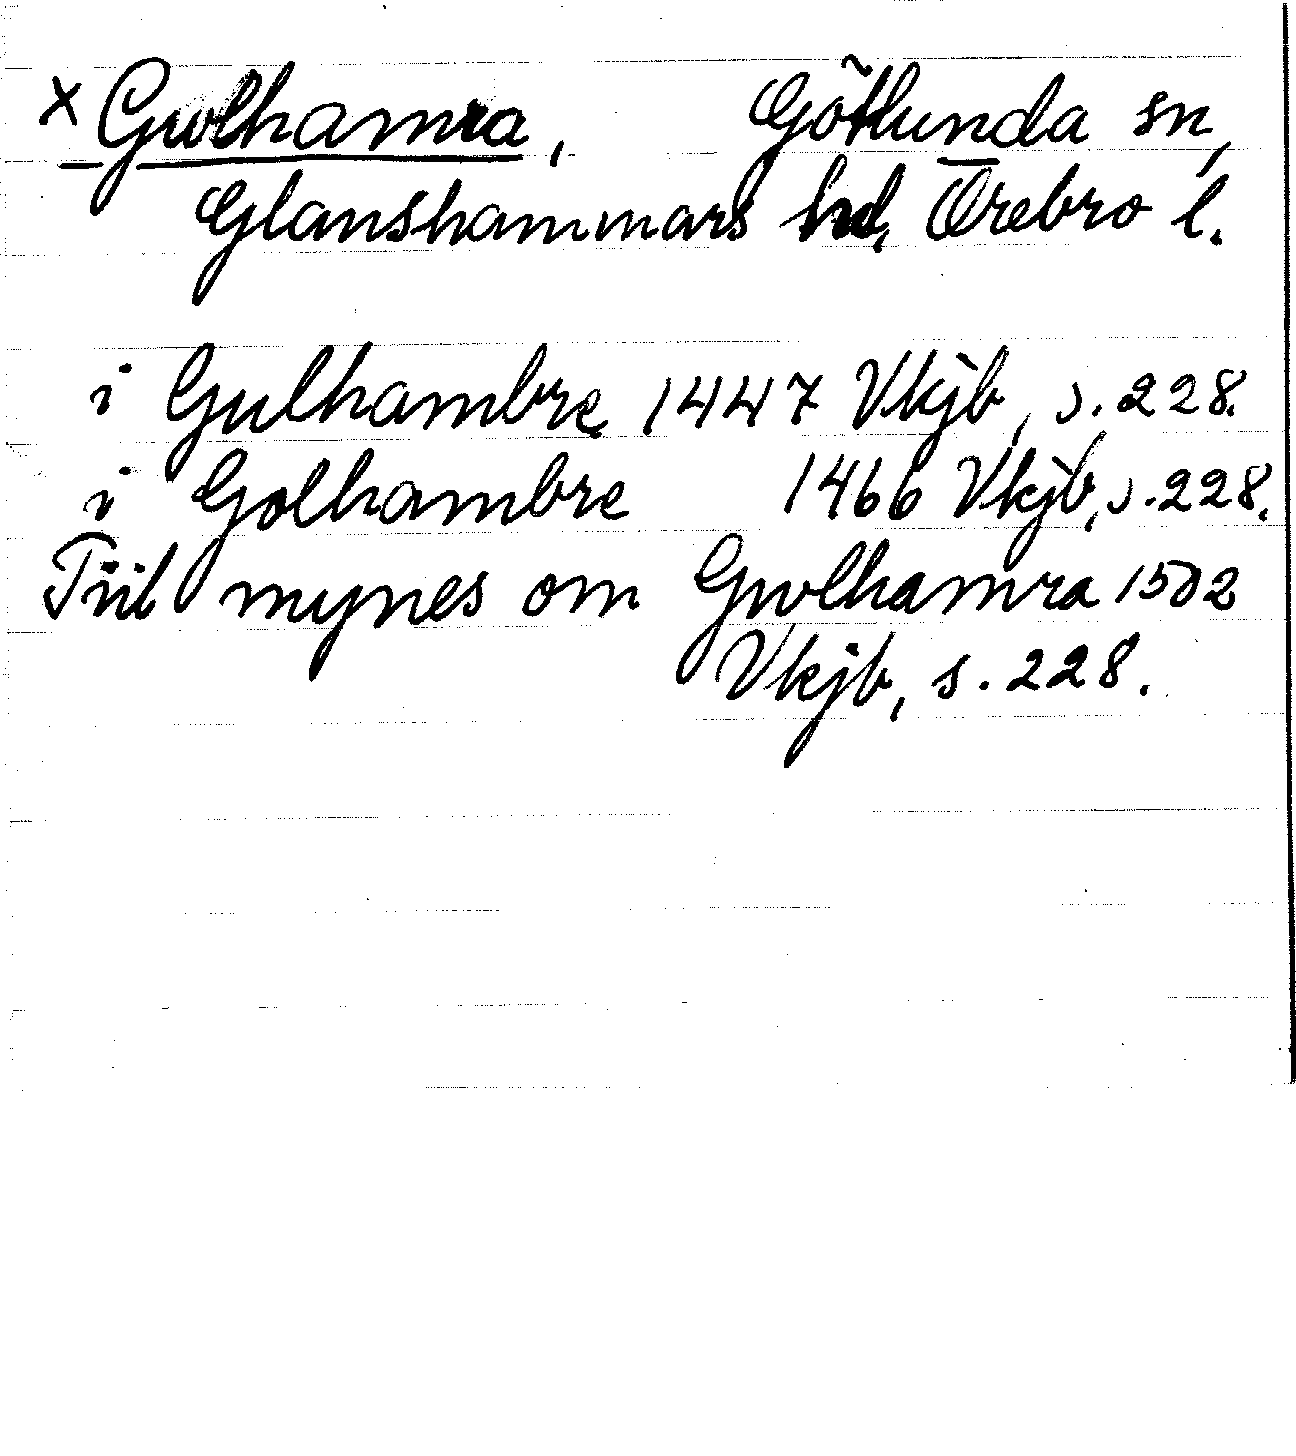 × Gwlhamra, Götlunda sn,
Glanshammars hd, Örebro l.
i Gulhambre 1447 Vkjb, s. 228.
i Golhambre 1466 Vkjb, s. 228.
Tiil mynes om Gwlhamra 1502
Vkjb, s. 228.